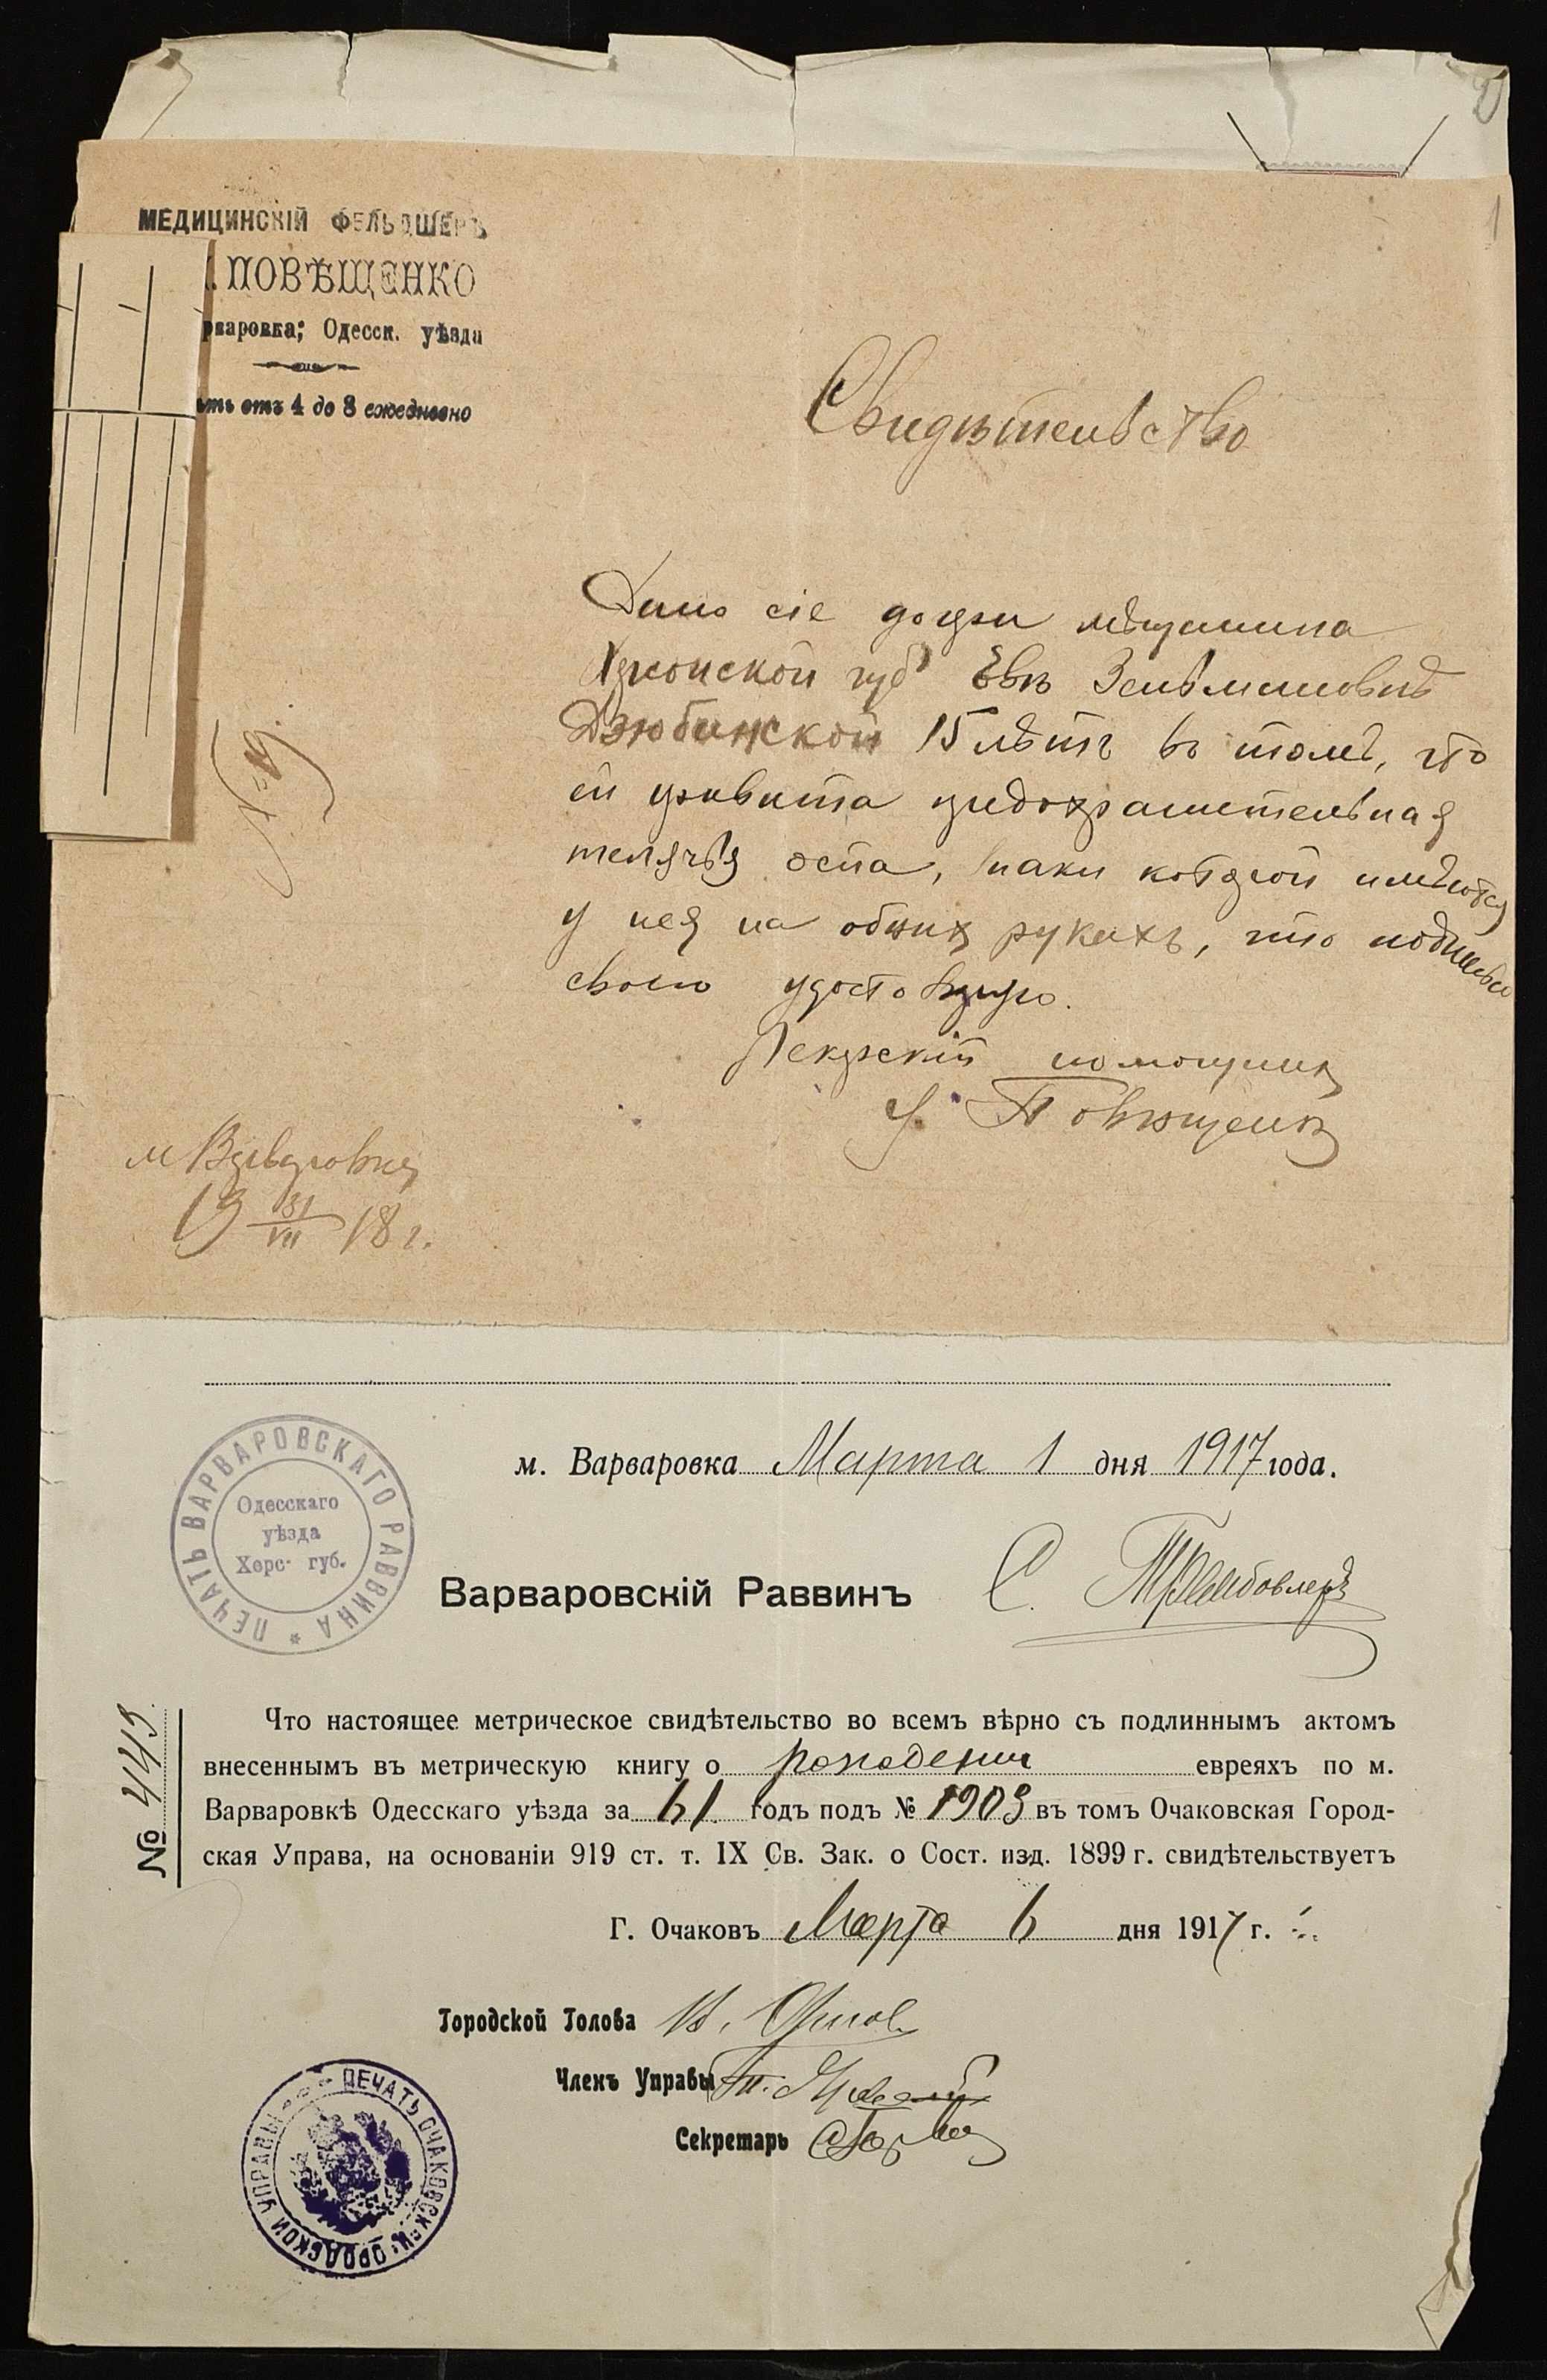 1
МЕДИЦИНСКІЙ ФЕЛЬДШЕРЪ
ПОВѢЩЕНКО
рваровка; Одесск. уѣзда
ать отъ 4 до 8 ежедневно
Свидѣтельство
Дано сіе дочери мѣщанина
Херсонской губ Евѣ Зельмановнѣ
Дзюбинской 15 лѣтъ въ томъ, что
ей привита предохранительная
телячья оспа, знаки которой имѣются
у нея на обѣихъ рукахъ, что подписью
своею удостовѣряю.
Лекарскій помощник
Повѣщенко
м Варваровка
19 31/VII 18 г.
м. Варваровка Марта 1 дня 1917 года.
ПЕЧАТЬ ВАРВАРОВСКАГО РАВВИНА *
Одесскаго
уѣзда
Херс. губ.
Варваровскій Раввинъ С. Трембовлеръ
№ 443.
Что настоящее метрическое свидѣтельство во всемъ вѣрно съ подлиннымъ актомъ
внесеннымъ въ метрическую книгу о рожденіи евреяхъ по м.
Варваровкѣ Одесскаго уѣзда за 61 годъ подъ № 1903 въ томъ Очаковская Город-
ская Управа, на основаніи 919 ст. т. IX Св. Зак. о Сост. изд. 1899 г. свидѣтельствуетъ
Г. Очаковъ Марта 6 дня 1917 г.
Городской Голова
Членъ Управы
Секретарь
ПЕЧАТЬ ОЧАКОВСКОЙ ГОРОДСКОЙ УПРАВЫ